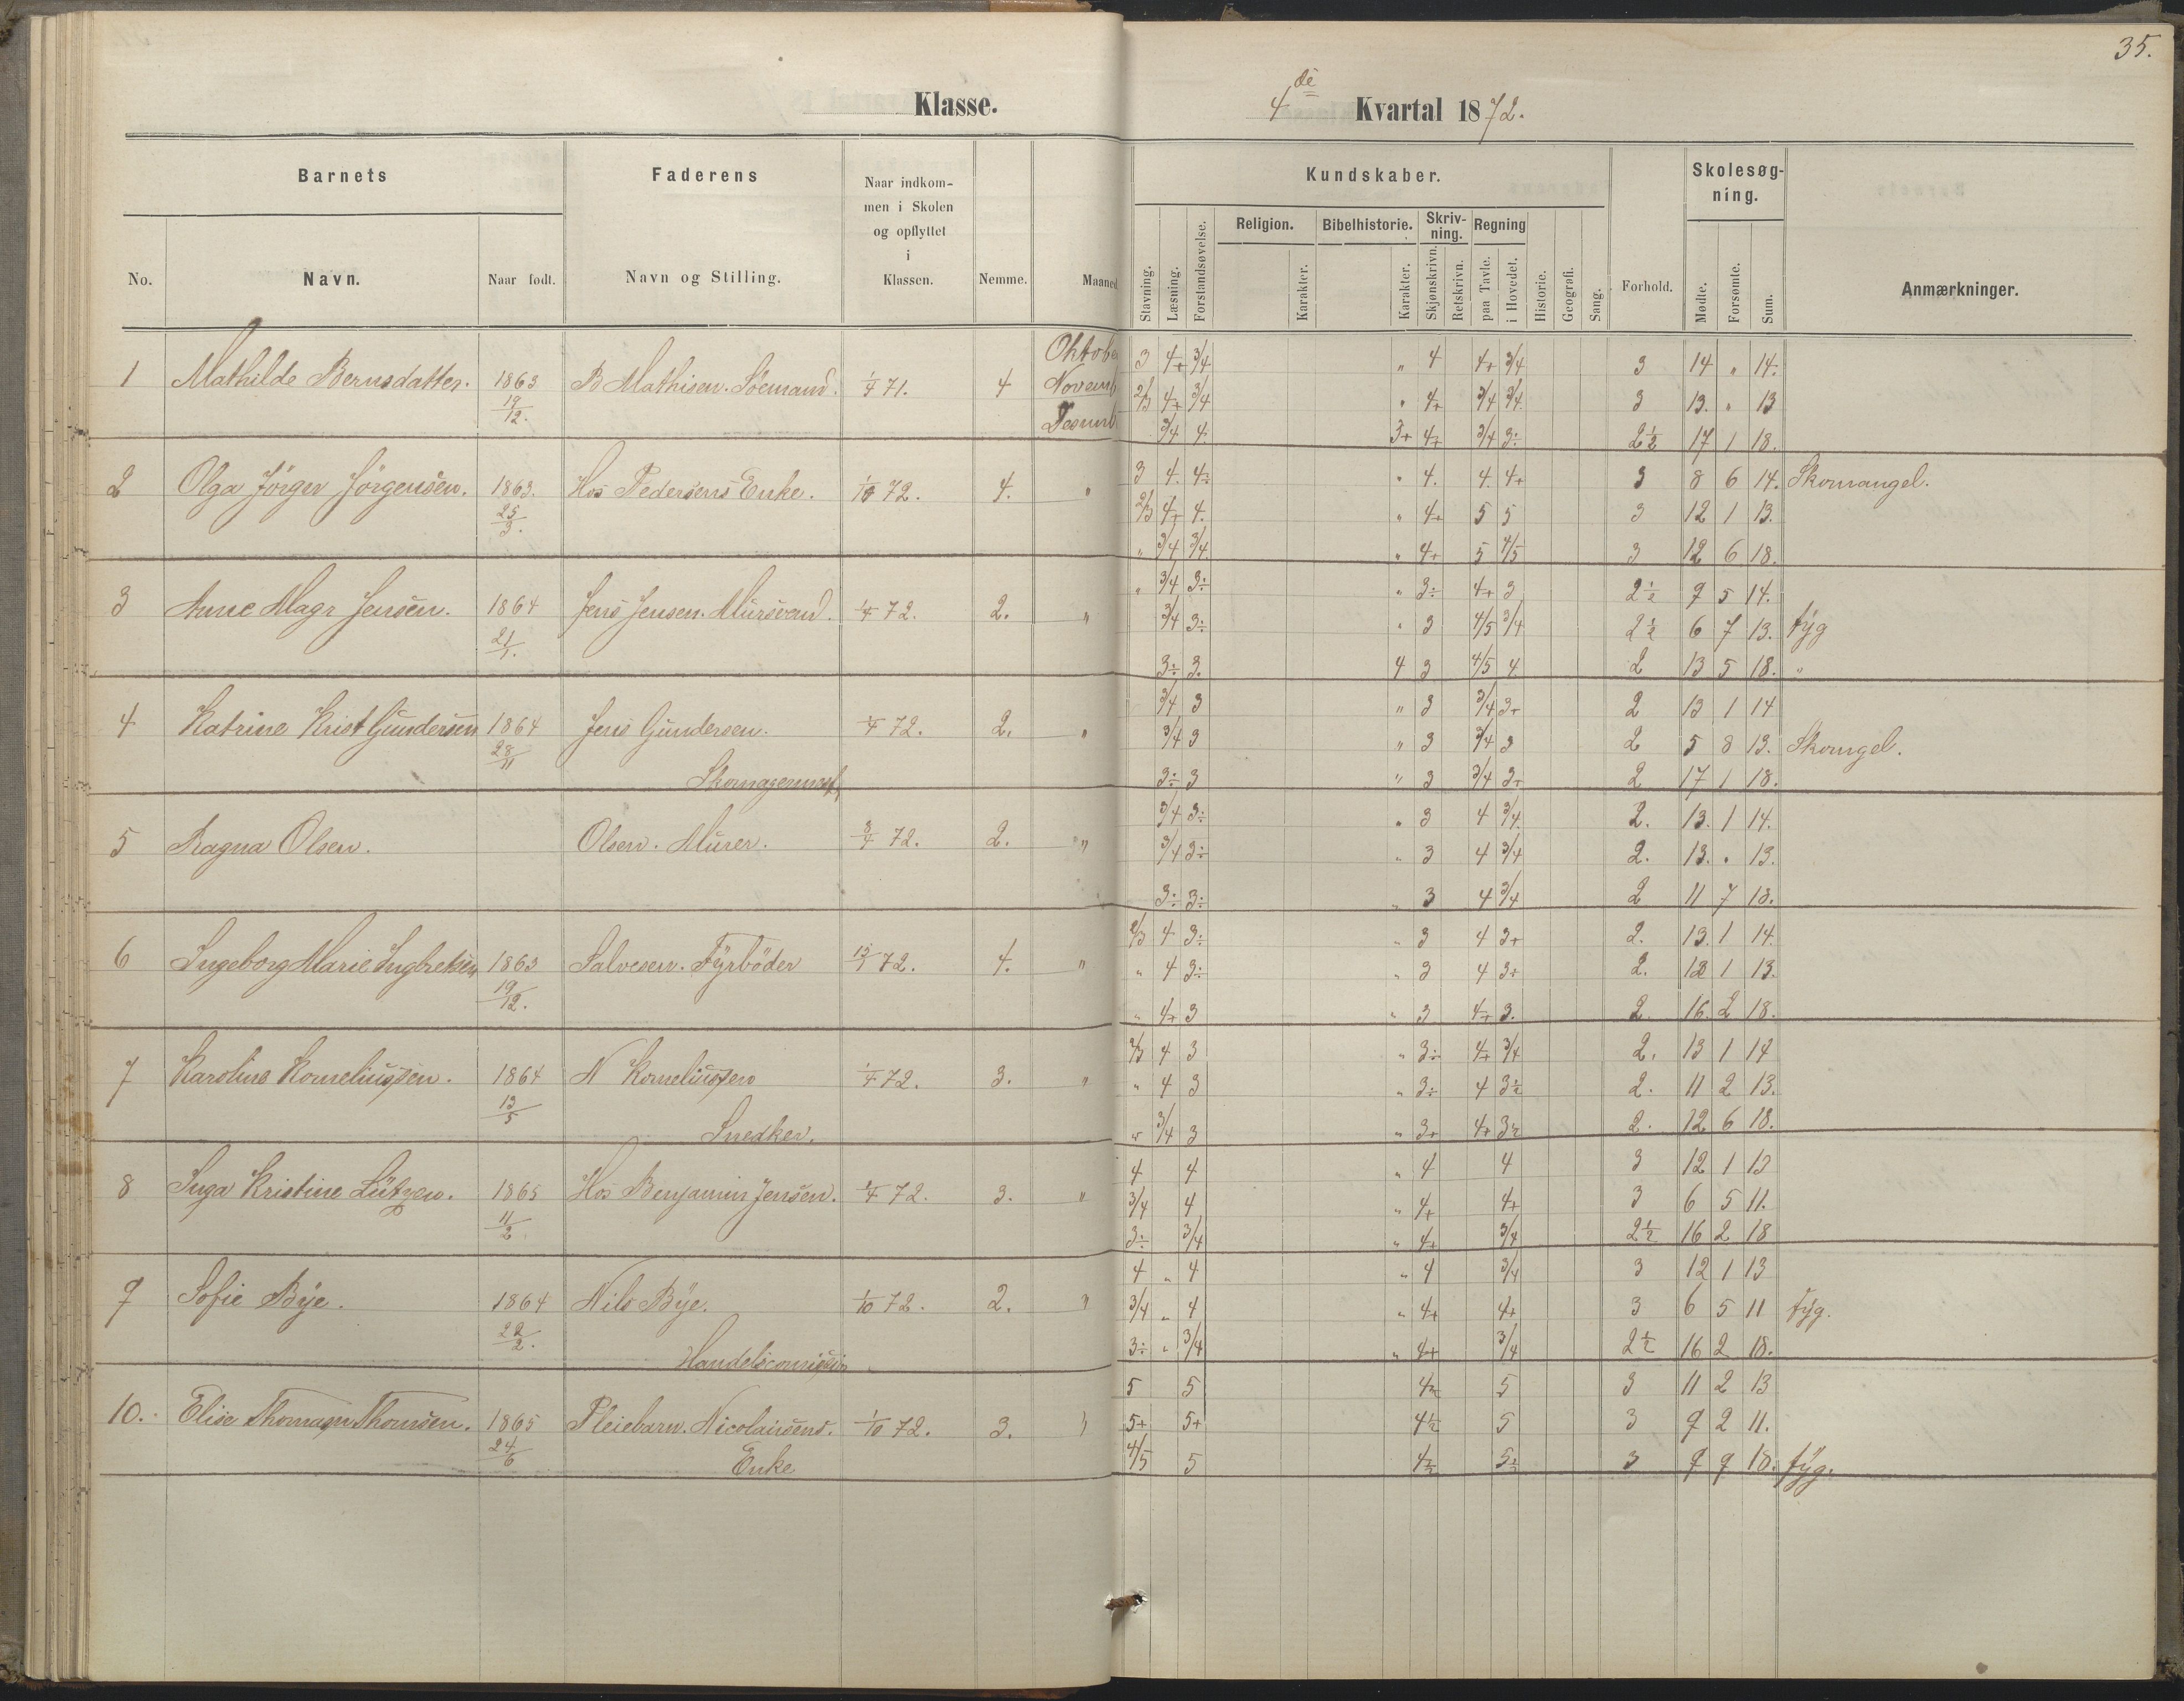 35.
Klasse.
4de Kvartal 1872.
Barnets
Faderens
Naar indkom-
men i Skolen
og opflyttet
i
Klassen.
Kundskaber.
Skolesøg-
ning.
Religion. Bibelhistorie. Skriv-
ning. Regning
No. Navn. Naar født. Navn og Stilling. Nemme. Maaned
Stavning. Læsning. Forstandsøvelse. Karakter. Karakter. Skjønskrivn. Retskrivn. paa Tavle. i Hovedet. Historie. Geografi. Sang. Forhold. Mødte. Forsømte. Sum. Anmærkninger.
Oktobe 3 4+ 3/4 " 4 4+ 3/4 3 14 " 14.
1 Mathilde Bernsdatter. 1863 B Mathisen. Söemand. 1/4 71. 4 Novemb 2/3 4+ 3/4 " 4+ 3/4 3/4 3 13. " 13
19/12. Desemb 3/4 4. 3+ 4+ 3/4 3÷ 2½ 17 1 18.
2 Olga Jörgen Jörgensen. 1863. Hos Pedersens Enke. 1/10 72. 4. " 3 4. 4÷ " 4. 4. 4+ 3 8 6 14. Skomangel.
25/3. 2/3 4+ 4. " 4+ 5 5 3 12 1 13.
" 3/4 3/4 " 4+ 5 4/5 3 12 6 18.
3 Anne Magr Jensen. 1864 Jens Jensen. Mursvend. 1/4 72. 2. " " 3/4 3÷ " 3÷ 4+ 3 2½ 9 5 14.
21/1. 3/4 3÷ " 3 4/5 3/4 2½ 6 7 13. syg
3÷ 3. 4 3 4/5 4 2 13 5 18. "
4 Katrine Krist Gundersen 1864 Jens Gundersen. 1/4 72. 2. " 3/4 3 " 3 3/4 3+ 2 13 1 14
28/11 3/4 3 " 3 3/4 3 2 5 8 13. Skomgel.
Skomagermst, 3÷ 3 " 3 3/4 3+ 2 17 1 18.
5 Ragna Olsen. Olsen. Murer. 3/4 72. 2. " 3/4 3÷ " 3 4 3/4 2. 13. 1 14.
3/4 3÷ " 3 4 3/4 2. 13. " 13.
3÷ 3÷ " 3 4 3/4 2 11 7 18.
6 Ingeborg Marie Ingbretsen 1863 Salvesen. Fyrböder 72. 4. " 2/3 4 3÷ " 3 4 3+ 2. 13. 1 14.
19/12. " 4 3÷ " 3 4 3+ 2. 12 1 13.
" 4+ 3 " 3 4+ 3. 2. 16. 2 18.
7 Karoline Korneliussen. 1864 N Korneliussen 1/4 72. 3. " 2/3 4 3 " 3÷ 4+ 3/4 2. 13 1 14
13/5 " 4 3 " 3÷ 4 3½ 2. 11 2 13.
Snedker. " 3/4 3 " 3+ 4+ 3½ 2. 12 6 18.
8 Inga Kristine Lützen. 1865 Hos Benjamin Jensen. 1/4 72. 3. " 4 4 " 4 4 3 12 1 13
11/2. 3/4 4 " 4+ 4+ 3 6 5 11.
3÷ 3/4 " 4+ 3/4 2½ 16 2 18
9 Sofie Bye. 1864 Nils Bye. 1/10 72. 2. " 4 " 4 " 4 3/4 3 12 1 13
22/2. 3/4 " 4 " 4+ 4+ 3 6 5 11 syg.
3÷ " 3/4 " 4+ 3/4 2½ 16 2 18.
10. Elise Thomsen. 1865 Pleiebarn. Nicolaisens. 1/10 72. 3. " 5 5 4½ 5 3 11 2 13
24/6 Enke 5+ 5+ 4½ 5 3 9 2 11.
4/5 5 4½ 5½ 3 9 9 18. syg.